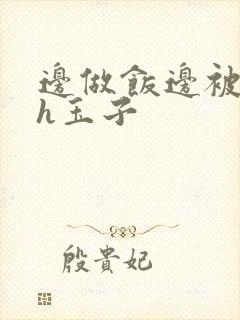 邊做飯邊被
h玉子
殷貴妃